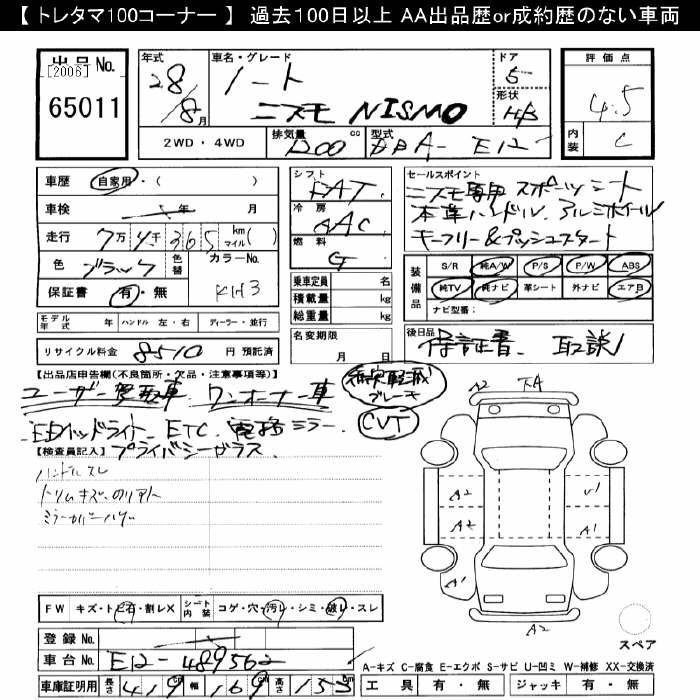 【 トレタマ100コーナー 】 過去100日以上 AA出品歴or成約歴のない車両
出品 No. [2006] 65011
年式 28/8月
車名・グレード ノート ニスモ NISMO
ドア 5
形状 H/B
評価点 4.5
内装 C
2WD・4WD
排気量 1200 cc
型式 DBA- E12
車歴 自家用・( )
車検 年 月
走行 7万4千365 km マイル( )
色 ブラック 色替
カラーNo. KH3
保証書 有・無
シフト FAT
冷房 AAC
燃料 G
乗車定員 名
積載量 kg
総重量 kg
セールスポイント
ニスモ専用 スポーツシート
本革ハンドル、アルミホイール
キーフリー&プッシュスタート
装備品 S/R 純A/W P/S P/W ABS
純TV 純ナビ 革シート 外ナビ エアB
ナビ型番:
モデル年式 年 ハンドル 左・右 ディーラー・並行
リサイクル料金 8510 円 預託済
名変期限 月 日
後日品 保証書、取説
【出品店申告欄(不良箇所・欠品・注意事項等)】
ユーザー買取車 ワンオーナー車
衝突軽減ブレーキ
LEDヘッドライト、ETC、電格ミラー、
CVT
プライバシーガラス
【検査員記入】
ハンドルスレ
トリムキズ、のリアト
ミラーカバー
FW キズ・トビ石・割レX
シート内装 コゲ・穴・汚レ・シミ・破レ・スレ
登録 No.
車台 No. E12-489562
車庫証明用 長さ 419 幅 169 高さ 153
A2
A2
A2
A1
U1
A1
A2
スペア
A-キズ C-腐食 E-エクボ S-サビ U-凹ミ W-補修 XX-交換済
工具 有・無 ジャッキ 有・無